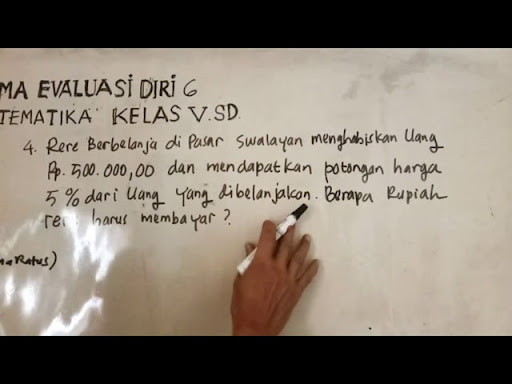 MA EVALUASI DIRI 6
TEMATIKA KELAS V.SD.
4. Rere Berbelanja di Pasar Swalayan menghabiskan Uang
Rp. 500.000,00 dan mendapatkan potongan harga
5% dari Uang yang dibelanjakan. Berapa Rupiah
harus membayar?
Ratus)